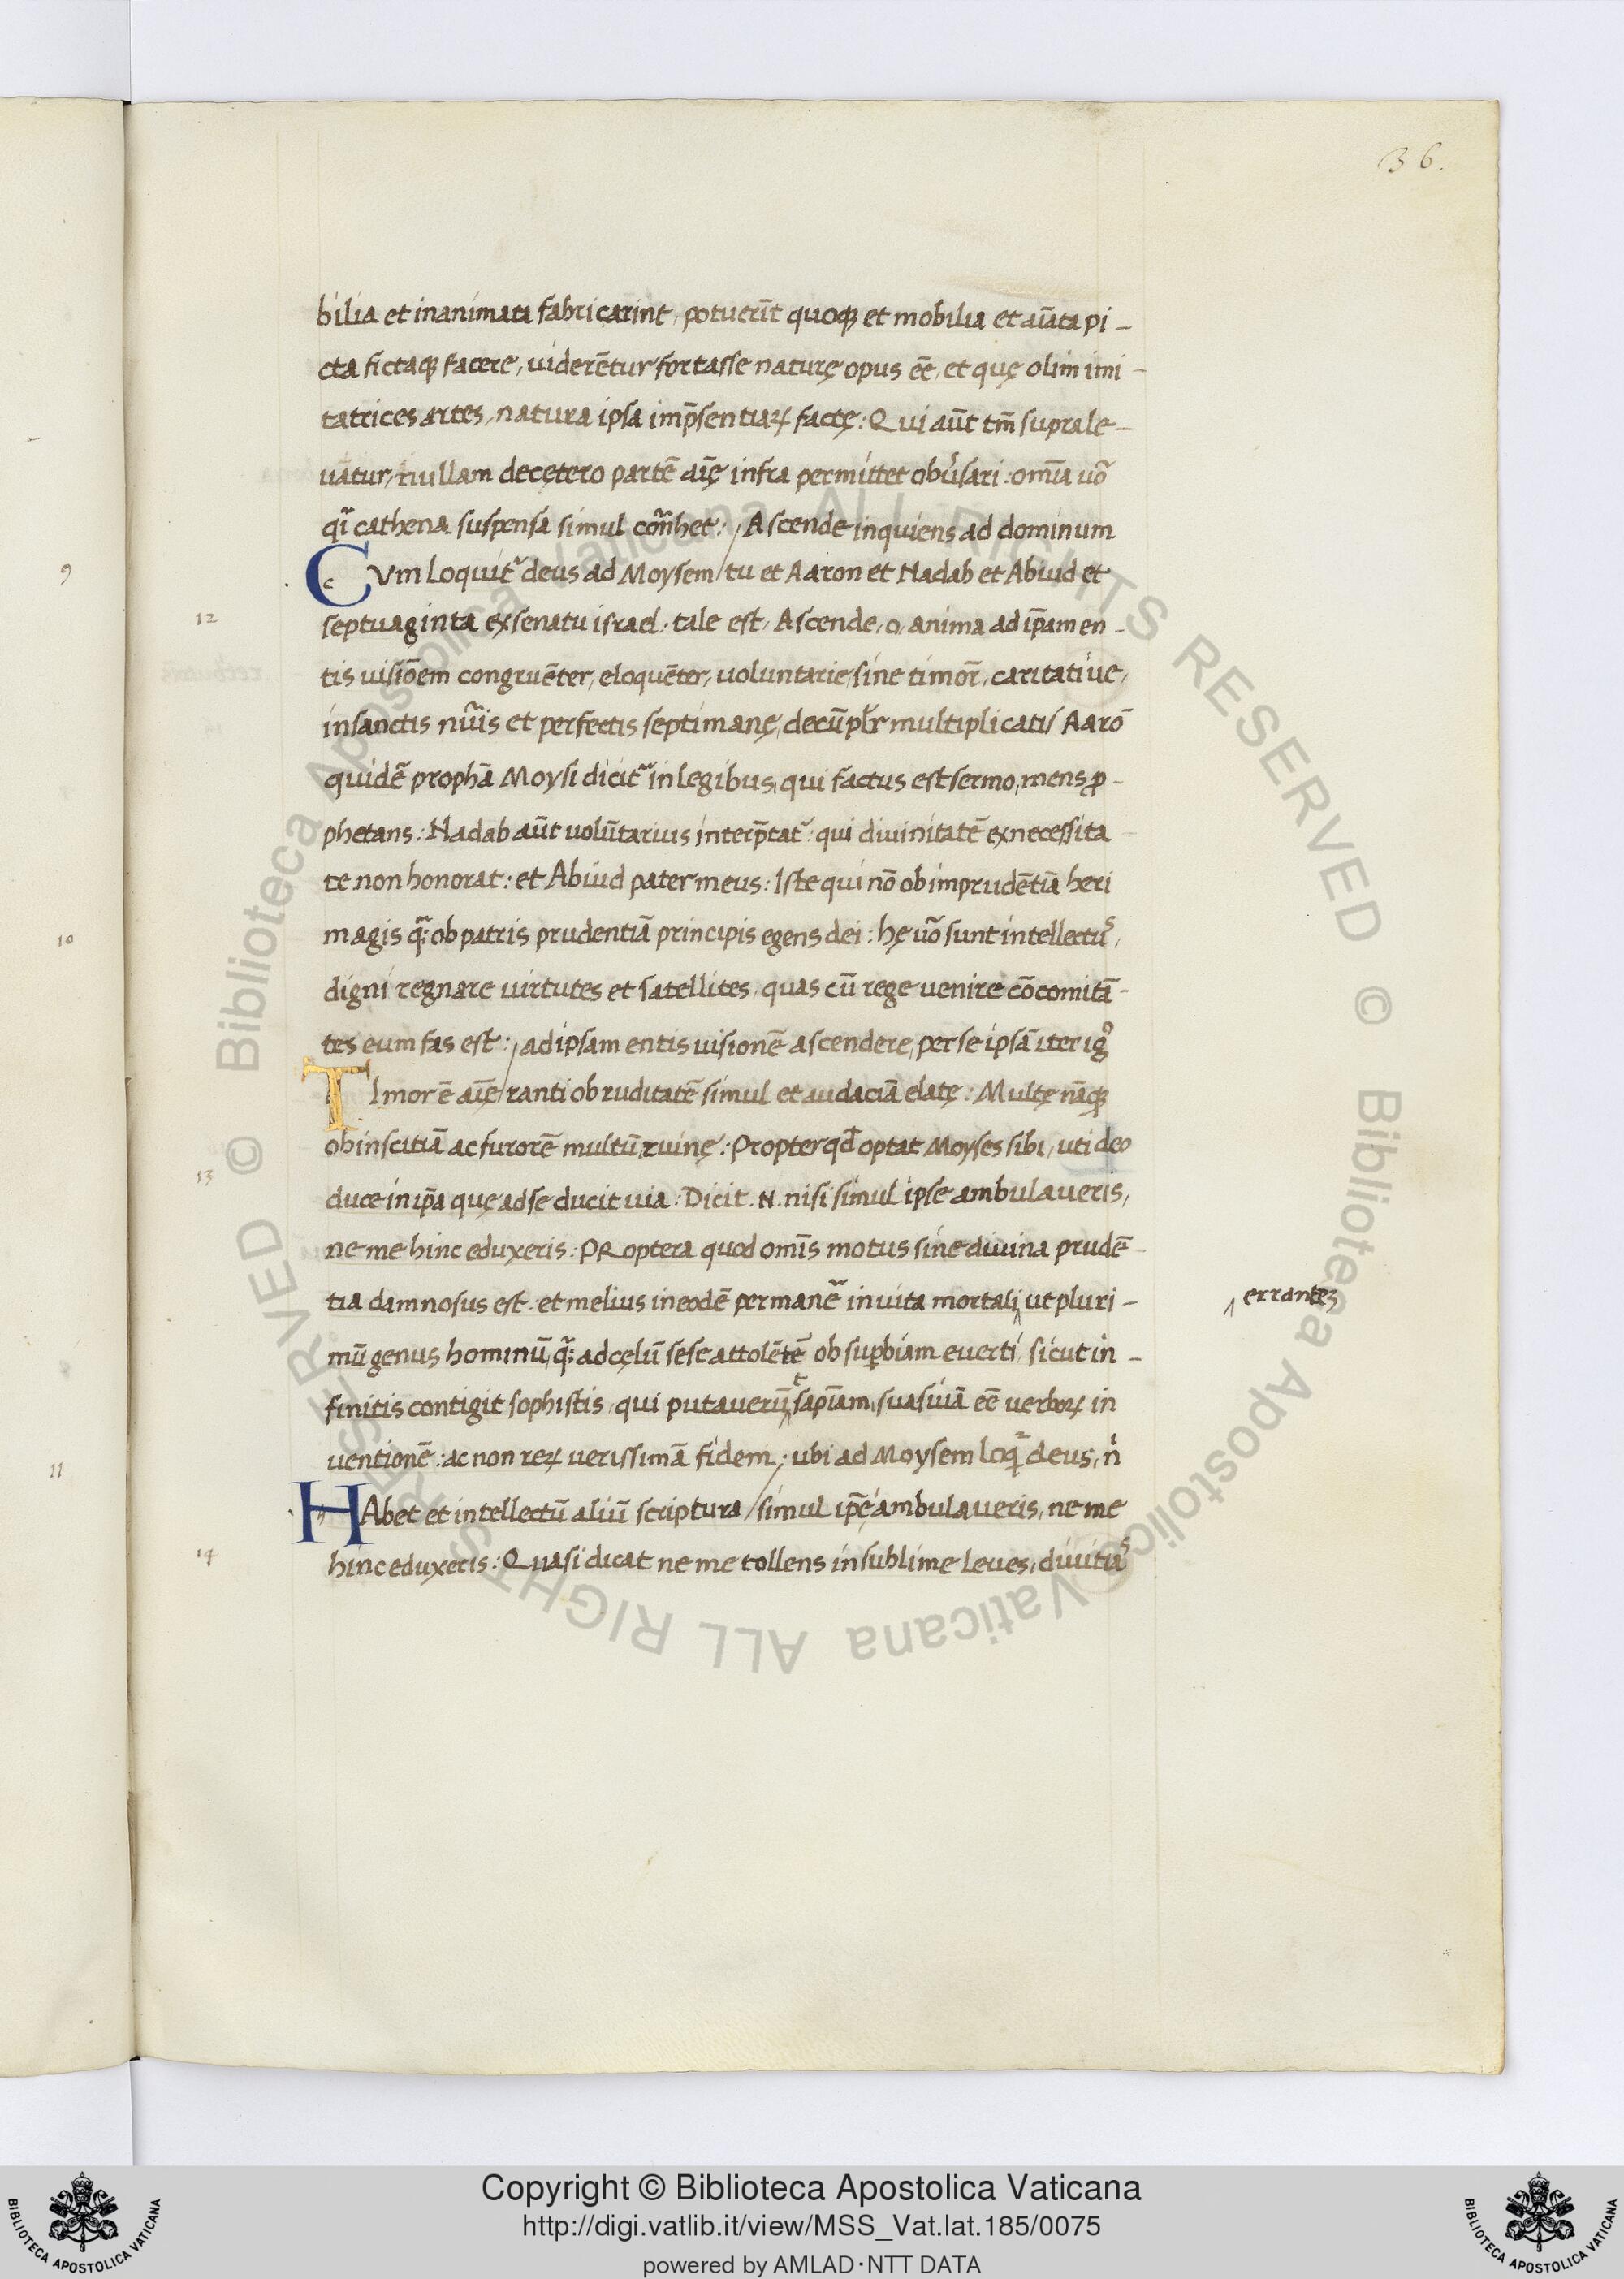 36.
bilia et inanimata fabricarint, potuerīt quoq; et mobilia et aīata pi-
cta fictaq; facere, uiderētur fortasse naturę opus eē, et quę olim imi-
tatrices artes, natura ipsa imp̄sentiaꝝ factę: Qui aūt tm̄ suprale-
uātur, nullam decętero partē aīę infra permittet obūsari: omīa uō
cathena suspensa simul Ascende inquiens ad dominum
9
CVm Loquit᷑ deus ad Moysem/ tu et Aaron et Nadab et Abiud et
12
septuaginta ex senatu israel. tale est, Ascende, o, anima ad ip̄am en-
tis uisiōem congruēter, eloquēter, uoluntarie, sine timor̄, caritatiue,
in sanctis nūis et perfectis septimanę, decūpłr multiplicatis Aarō
quidē prophā Moysi dicit᷑ in legibus, qui factus est sermo, mens ꝓ-
phetans: Nadab aūt uolūtarius interp̄tat᷑: qui diuinitatē ex necessita-
te non honorat: et Abiud pater meus: Iste qui nō ob imprudētiā heri
magis ob patris prudentiā principis egens dei: hę uō sunt intellectuˢ,
10
digni regnare uirtutes et satellites, quas cū rege uenire cōcomitā-
tes eum fas est: / ad ipsam entis uisionē ascendere, per se ipsā iter igͦ
TImorē aīę/ ranti ob ruditatē simul et audaciā elatę: Multę nāq;
ob inscitiā ac furorē multū ruinę: Propter qđ optat Moyses sibi, uti deo
13
duce in ip̄a quę ad se ducit uia: Dicit .N. nisi simul ipse ambulaueris,
ne me hinc eduxeris: PRoptera quod omīs motus sine diuina prudē-
tia damnosus est. et melius in eodē permanē᷑ in uita mortali ‸ ut pluri-
‸ errantes
mū genus hominū, ad cęlū sese attolētē ob suꝑbiam euerti, sicut in-
finitis contigit sophistis, qui putauerūt sapīam, suasiuā eē uerboꝝ in
uentionē: ac non reꝝ uerissimā fidem: ubi ad Moysem loq᷑ deus, nͥ
11
HAbet et intellectū aliū scriptura / simul ip̄e ambulaueris, ne me
14
hinc eduxeris: Quasi dicat ne me tollens in sublime Leues, diuitiaˢ
© Biblioteca Apostolica Vaticana ALL RIGHTS RESERVED © Biblioteca Apostolica Vaticana ALL RIGHTS RESERVED
Copyright © Biblioteca Apostolica Vaticana
http://digi.vatlib.it/view/MSS_Vat.lat.185/0075
powered by AMLAD·NTT DATA
BIBLIOTECA APOSTOLICA VATICANA
BIBLIOTECA APOSTOLICA VATICANA